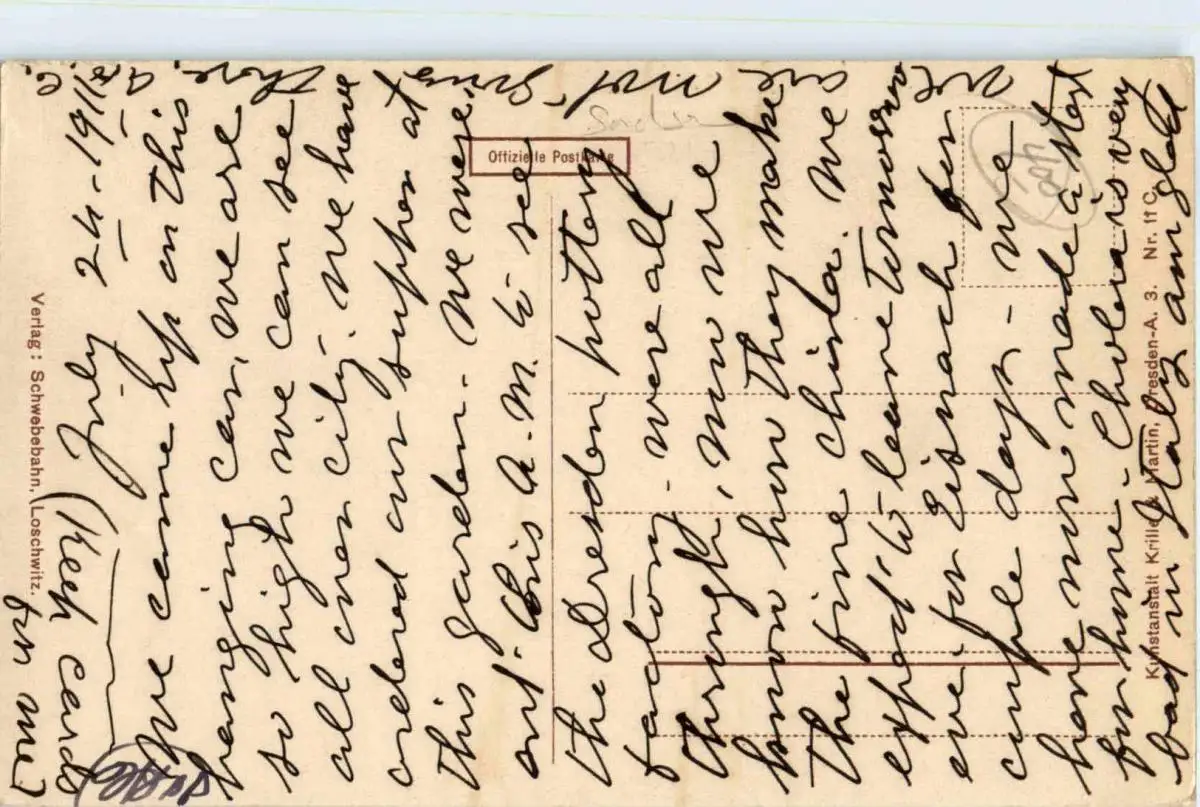 (Keep cards
July 24 - 1911.
We came up on this
hanging car, we are
so high we can see
all over city. We have
ordered our supper at
this garden - We were
out this A.M. to see
the dresden pottery
factory - were all
through, now we
know how they make
the fine china. We
expect to leave tomorrow
eve. for Eisenach for
couple days - we
have now made a start
for home. Cholera is very
bad in Italy am glad
we are not going there.
Offizielle Postkarte
Verlag: Schwebebahn, Loschwitz.
Kunstanstalt Krille & Martin, Dresden-A. 3. Nr. 11 C.